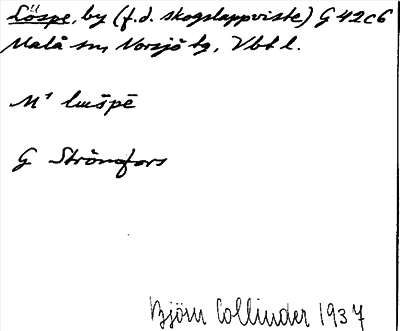 Löspe, by (f.d. skogslappviste) G 42c6
Malå sn, Norsjö tg, Vbt l.
M¹ luspē
G Strömfors
Björn Collinder 1937